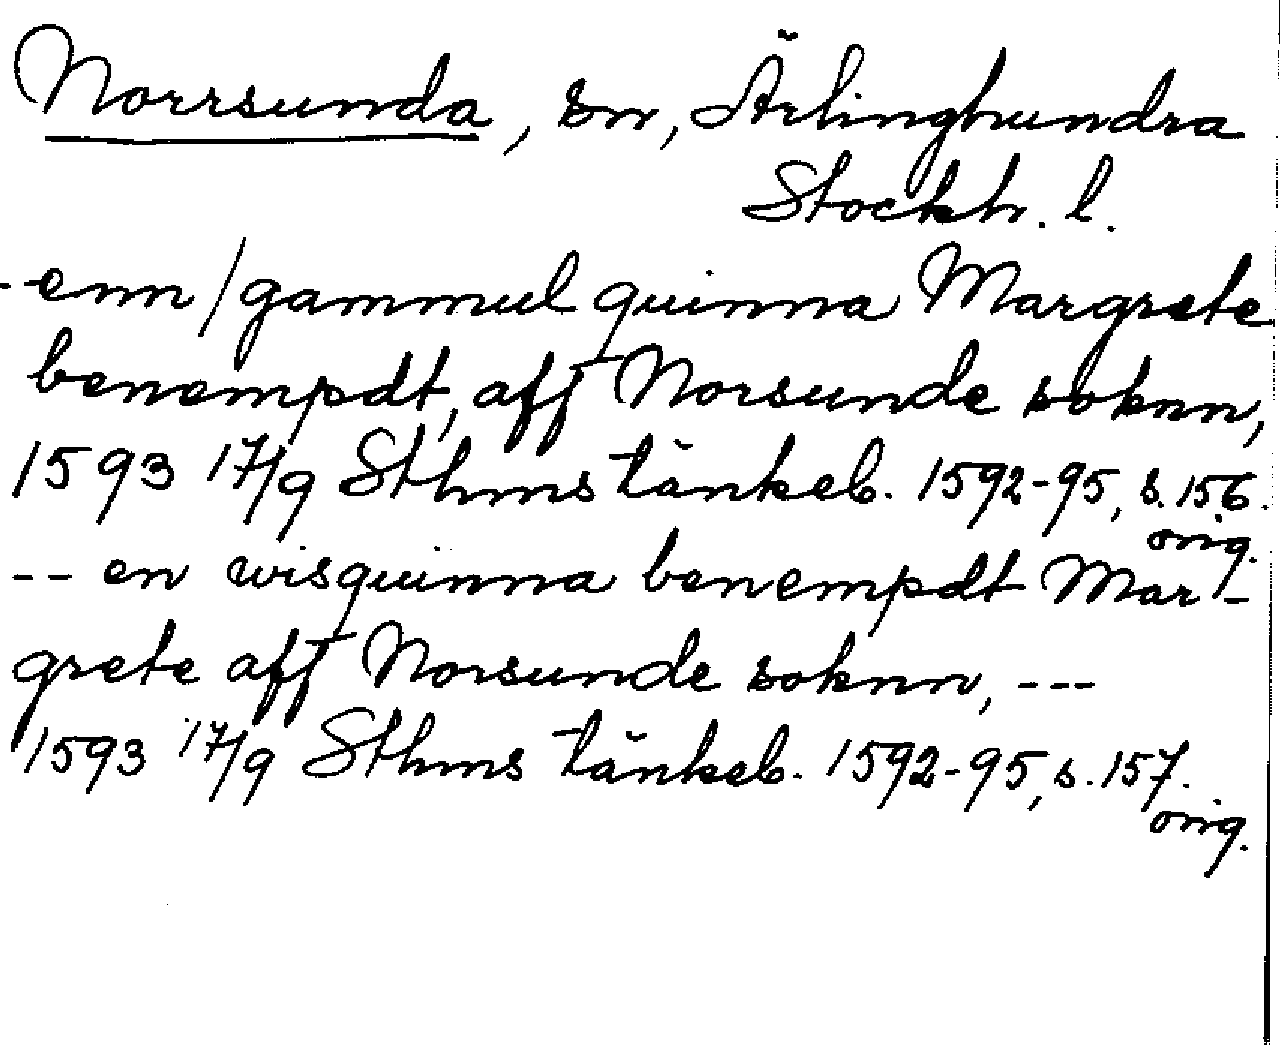 Norrsunda, sn, Ärlinghundra
Stockh. l.
--enn / gammul quinna Margrete
benempdt, aff Norsunde soknn,
1593 17/9 Sthms tänkeb. 1592-95, s. 156.
orig.
-- en wisquinna benempdt Mar-
grete aff Norsunde soknn, ---
1593 17/9 Sthms tänkeb. 1592-95, s. 157.
orig.